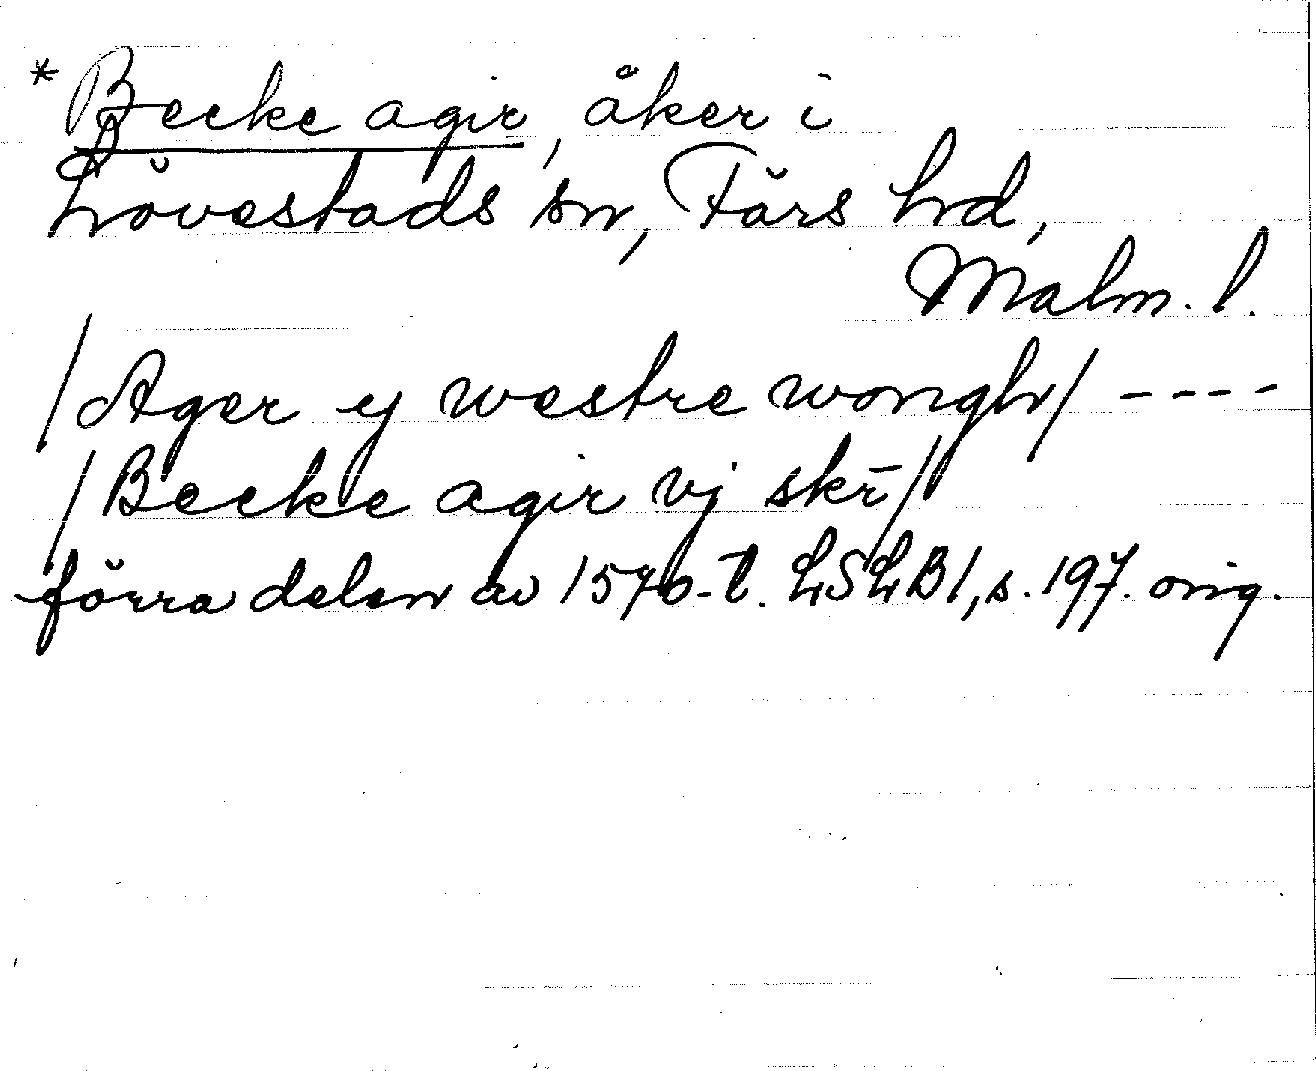 *Becke agir, åker i
Lövestads sn, Färs hd,
Malm. l.
/Ager ej westre wongh/ ----
/Becke agir vj skr̄/
förra delen av 1570-t. LSLB1, s. 197. orig.